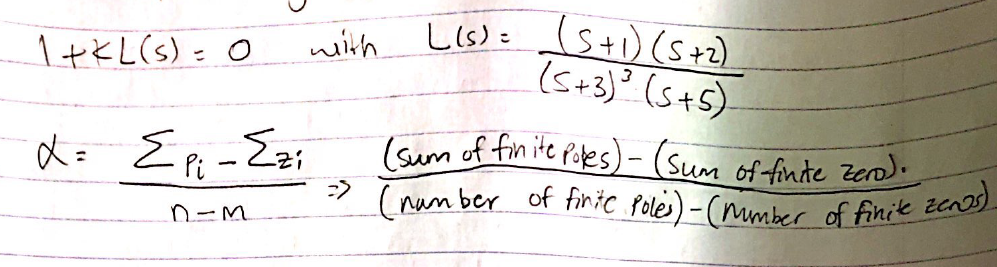 1+KL(s) = 0 with L(s) = (s+1)(s+2) / (s+3)³(s+5)
α = Σpi - Σzi / n-m => (sum of finite poles) - (sum of finite zero). / (number of finite poles) - (number of finite zeros)